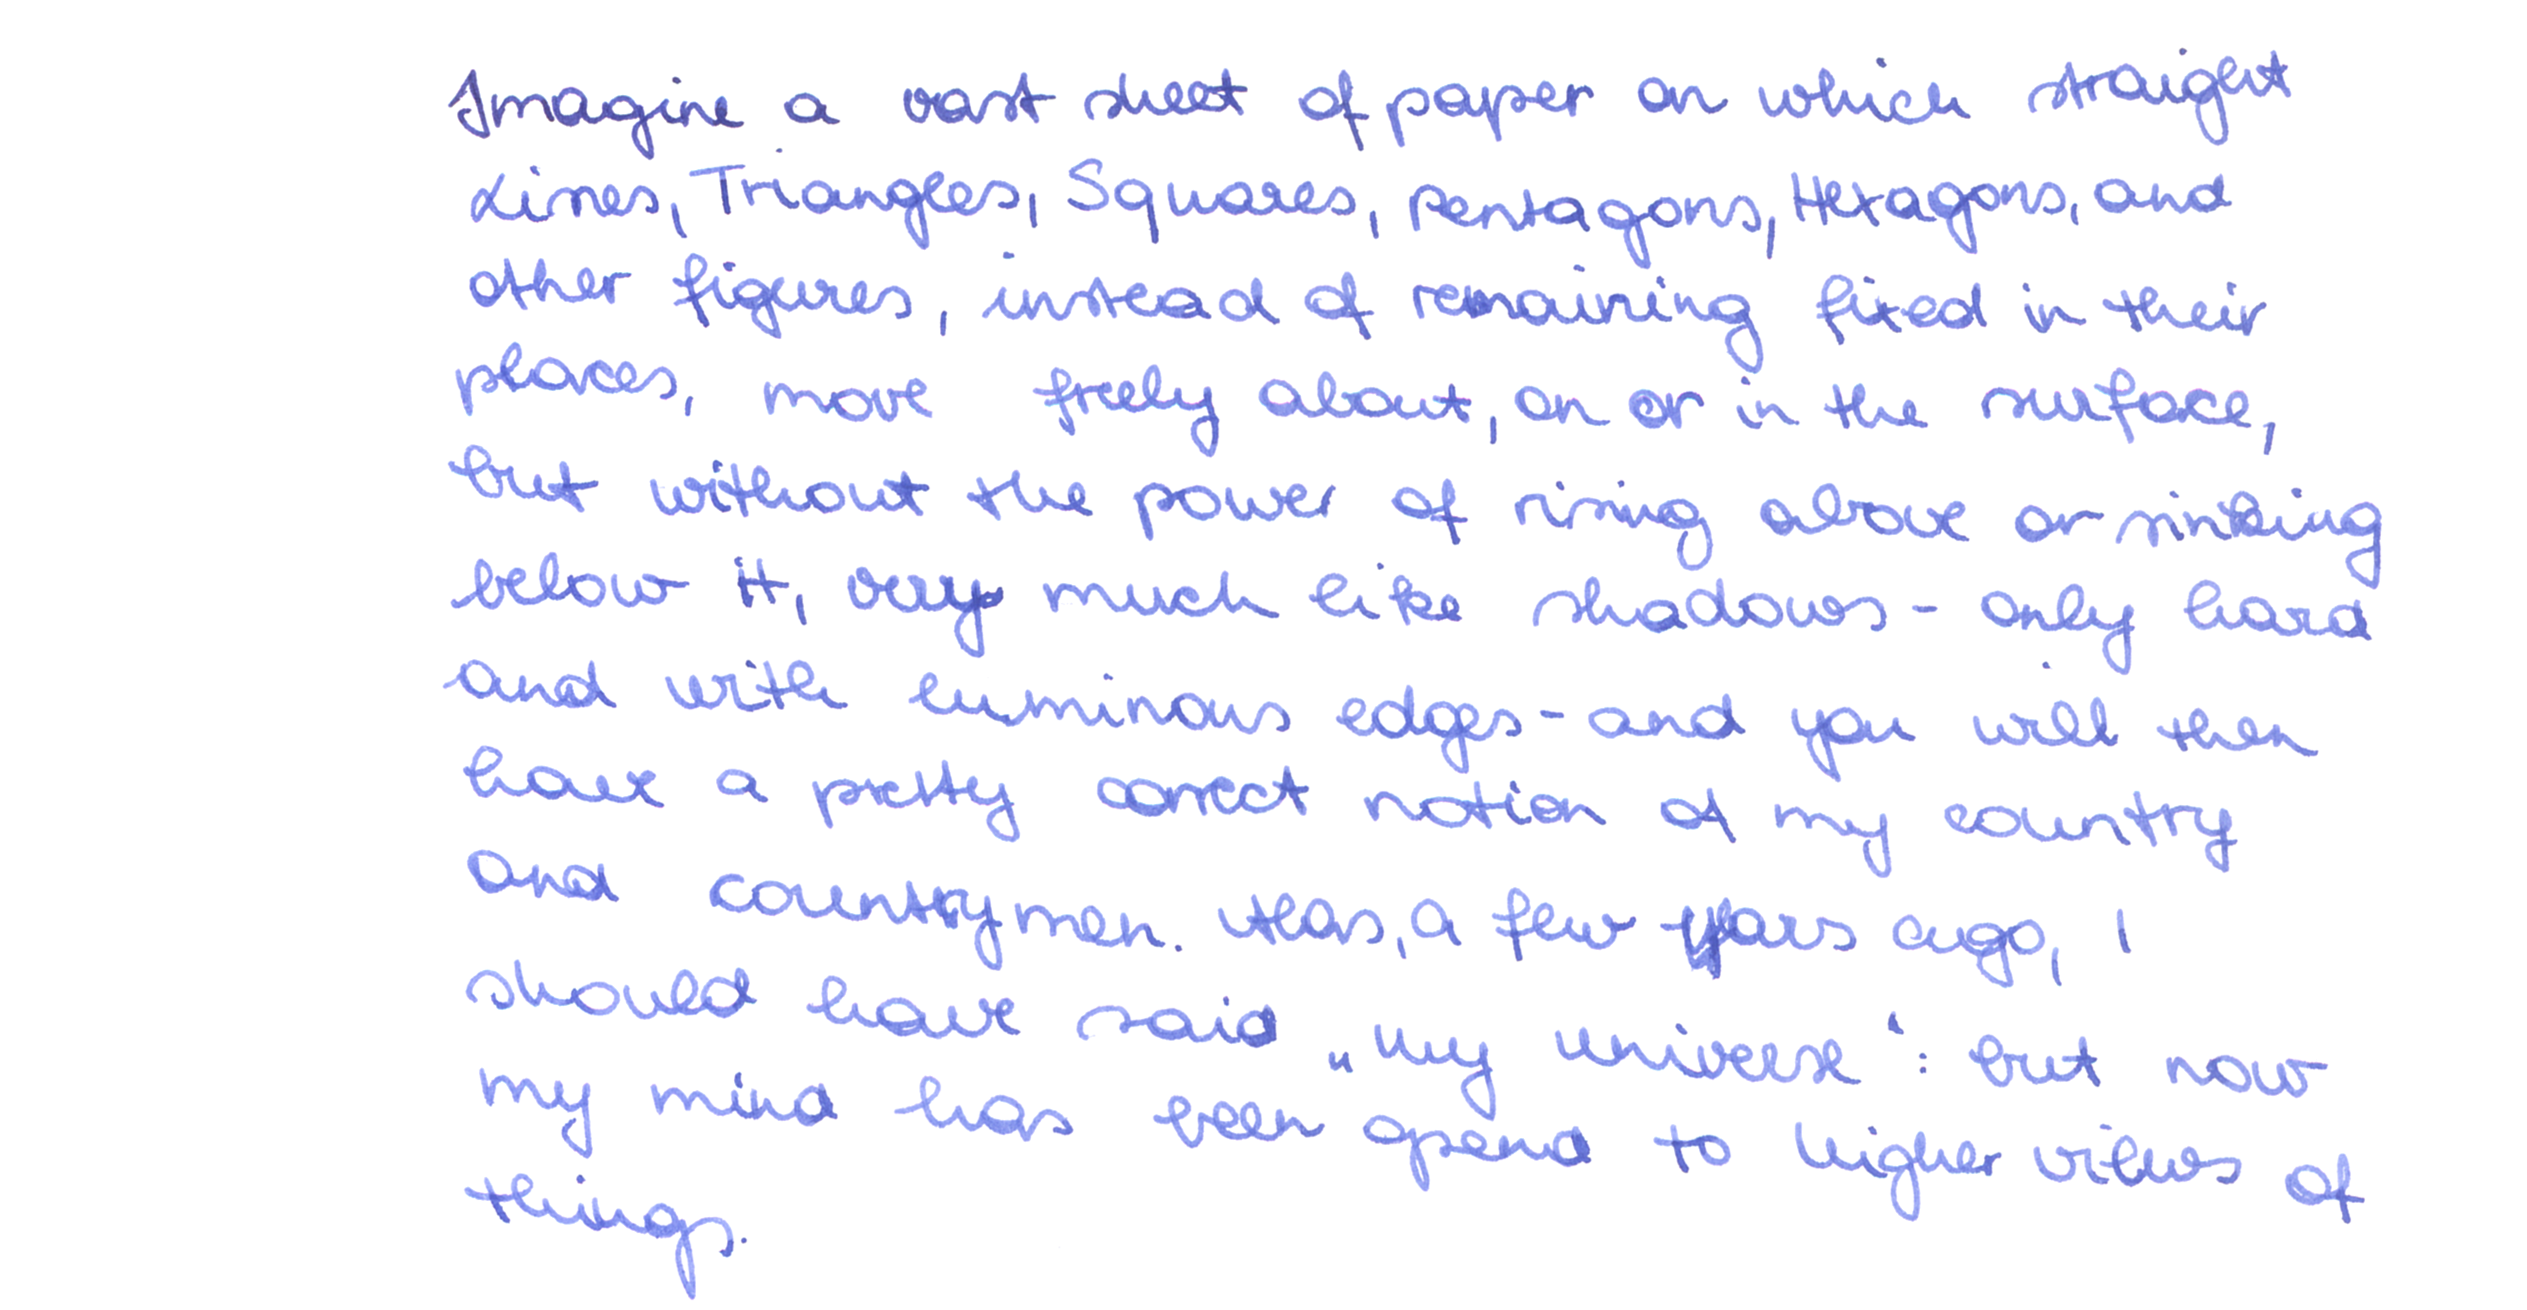 Imagine a vast sheet of paper on which straight
Lines, Triangles, Squares, Pentagons, Hexagons, and
other figures, instead of remaining fixed in their
places, move freely about, on or in the surface,
but without the power of rising above or sinking
below it, very much like shadows - only hard
and with luminous edges - and you will then
have a pretty correct notion of my country
and countrymen. Alas, a few years ago, I
should have said „my universe“: but now
my mind has been opend to higher views of
things.